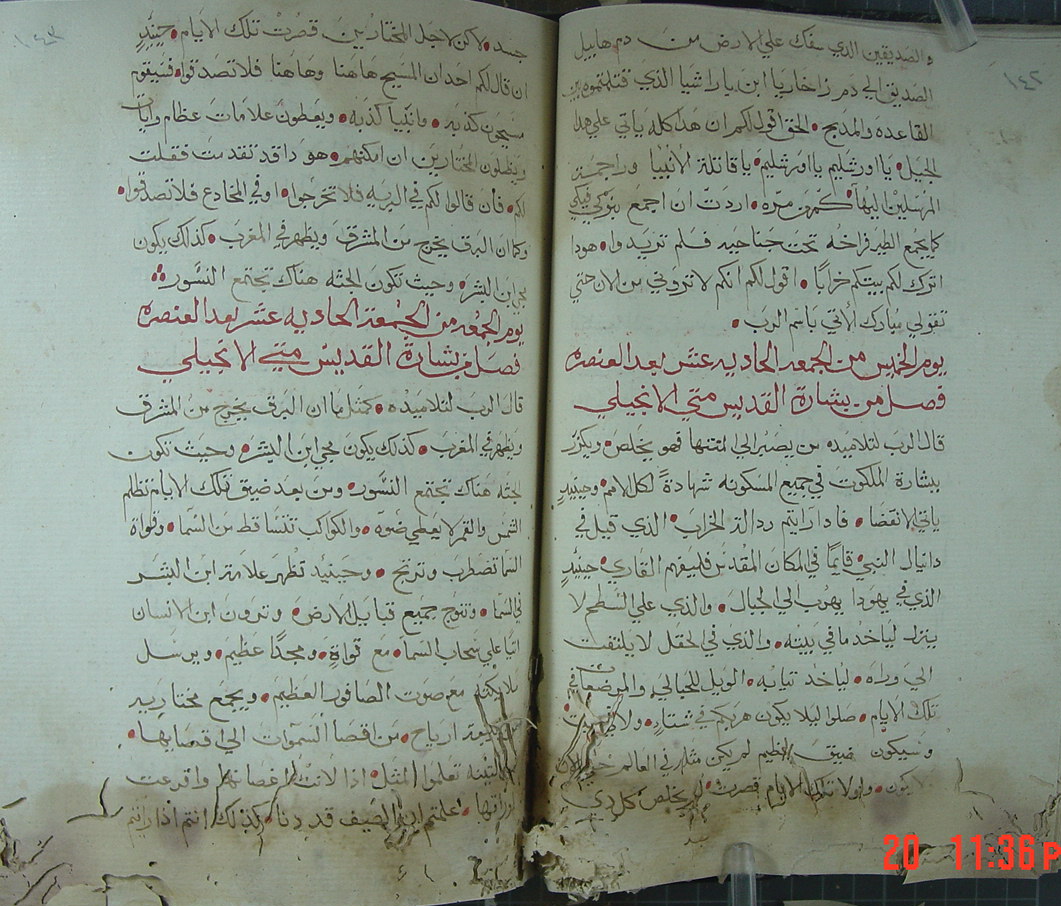 ١٤٢
والصديقين الذي سفك علي الارض من دم هابيل
الصديق الي دم زاخاريا ابن ياراشيا الذي قتلتموه بين
القاعده والمدبح • الحق اقول لكم ان هدا كله ياتي علي هدا
الجيل • يا اورشليم يا اورشليم • يا قاتلة الانبيا وراجمة
المرسلين اليها • كم من مره • اردت ان اجمع بنوكي فيكي
كما يجمع الطير فراخه تحت جناحيه فلم تريدوا • هودا
اترك لكم بيتكم خرابًا • اقول لكم انكم لا تروني من الان حتي
تقولي مبارك الاتي باسم الرب •
يوم الخميس من الجمعه الحاديه عشر بعد العنصره
فصل من بشارة القديس متي الانجيلي
قال الرب لتلاميده من يصبر الي المنتها فهو يخلص • ويكرز
ببشارة الملكوت في جميع المسكونه شهادةً لكل الامم • وحينيدٍ
ياتي الانقضا • فادا رايتم ردالة الخراب • الذي قيل في
دانيال النبي • قايمًا في المكان المقدس فليفهم القاري • حينيدٍ
الذي في يهودا يهرب الي الجبال • والذي علي السطح لا
ينزل لياخد ما في بيته • والذي في الحقل لا يلتفت
الي وراه • لياخد تيابه • الويل للحبالي والمرضعات في
تلك الايام • صلوا ليلا يكون هربكم في شتاءٍ • ولا في سبت •
وسيكون ضيق عظيم لم يكن مثله في العالم حتي الان
ولا يكون • ولولا تلك الايام قصرت • لم يخلص كل دي
١٤٣
جسد • لاكن لاجل المختارين قصرت تلك الايام • حينيدٍ
ان قال لكم احد ان المسيح هاهنا وهاهنا فلا تصدقوا • فسيقوم
مسيحون كذبه • وانبيا كذبه • ويعطون علامات عظام وايات
ويظلون المختارين ان امكنهم • هو دا قد تقدمت فقلت
لكم • فان قالوا لكم في البريه فلا تخرجوا • او في المخادع فلا تصدقوا •
وكما ان البرق يخرج من المشرق ويظهر في المغرب • كذلك يكون
مجي ابن البشر • وحيث تكون الجثه هناك تجتمع النسور
يوم الجمعه من الجمعة الحاديه عشر بعد العنصره
فصل من بشارة القديس متي الانجيلي
قال الرب لتلاميده • كمثل ما ان البرق يخرج من المشرق
ويظهر في المغرب • كذلك يكون مجي ابن البشر • وحيث تكون
الجثه هناك تجتمع النسور • ومن بعد ضيق تلك الايام تظلم
الشمس والقمر لا يعطي ضوه • والكواكب تتساقط من السما • وقواة
السما تضطرب وترتج • وحينيد تظهر علامة ابن البشر
في السما • وتنوح جميع قبايل الارض • وترون ابن الانسان
اتيًا علي سحاب السما • مع قواةٍ • ومجدًا عظيم • ويرسل
ملايكته مع صوت الصافور العظيم • ويجمع مختاريه
من اربعة ارياح • من اقصا السموات الي اقصايها •
من التينه تعلموا المثل • اذا لانت اغصانها وافرعت
اوراقها • علمتم ان الصيف قد دنا • كذلك انتم اذا رايتم
20 11:36 P